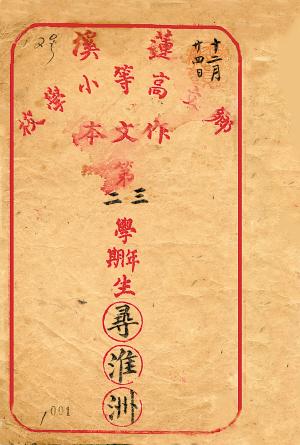 十二月
廿四日
蓮溪
高等小學校
作文本
第
三二
學
年期
生
尋淮洲
001